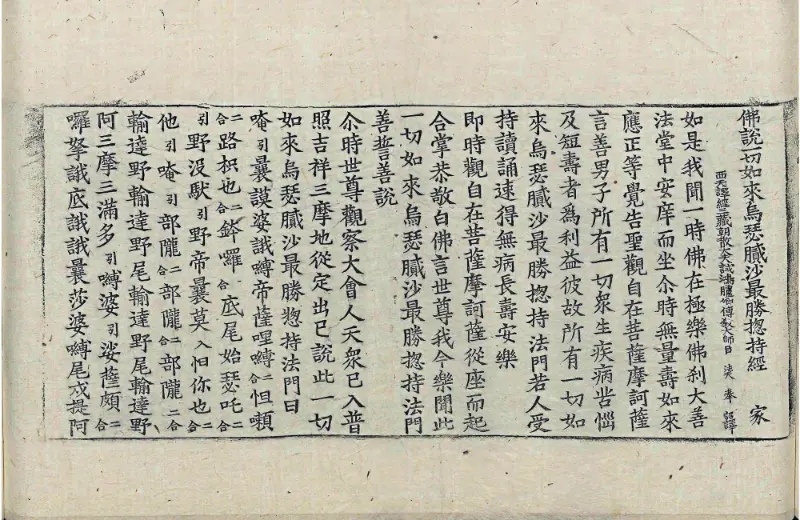 佛說一切如來烏瑟膩沙最勝揔持經 家
西天譯經三藏朝散大夫試鴻臚 傳 大師 法 奉 詔譯
如是我聞一時佛在極樂佛刹大善
法堂中安庠而坐尒時無量壽如來
應正等覺告聖觀自在菩薩摩訶薩
言善男子所有一切衆生疾病呰惱
及短壽者爲利益彼故所有一切如
來烏瑟膩沙最勝揔持法門若人受
持讀誦速得無病長壽安樂
即時觀自在菩薩摩訶薩從座而起
合掌恭敬白佛言世尊我今樂聞此
一切如來烏瑟膩沙最勝揔持法門
善誓善說
尒時世尊觀察大會人天衆已入普
照吉祥三摩地從定出已說此一切
如來烏瑟膩沙最勝惣持法門曰
唵引曩謨婆誐嚩帝薩哩嚩二合怛嚬
二合路枳也二合鉢囉二合底尾始瑟吒二合
引野没馱引野帝曩莫入怛你也二合
他引唵引部隴二合部隴二合部隴二合
輸達野輸達野尾輸達野尾輸達野
阿三摩三滿多引嚩婆引娑薩頗二合
囉拏誐底誐誐曩莎婆嚩尾戍提阿